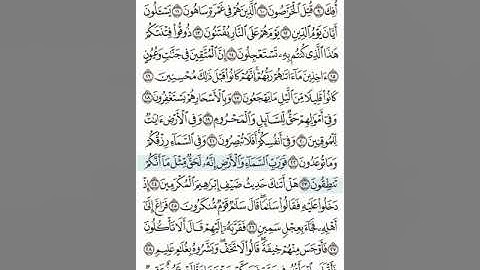 أُفِكَ ۝٩ قُتِلَ ٱلْخَرَّٰصُونَ ۝١٠ ٱلَّذِينَ هُمْ فِى غَمْرَةٍ سَاهُونَ ۝١١ يَسْـَٔلُونَ
أَيَّانَ يَوْمُ ٱلدِّينِ ۝١٢ يَوْمَ هُمْ عَلَى ٱلنَّارِ يُفْتَنُونَ ۝١٣ ذُوقُوا۟ فِتْنَتَكُمْ
هَٰذَا ٱلَّذِى كُنتُم بِهِۦ تَسْتَعْجِلُونَ ۝١٤ إِنَّ ٱلْمُتَّقِينَ فِى جَنَّٰتٍ وَعُيُونٍ
۝١٥ ءَاخِذِينَ مَآ ءَاتَىٰهُمْ رَبُّهُمْ إِنَّهُمْ كَانُوا۟ قَبْلَ ذَٰلِكَ مُحْسِنِينَ ۝١٦
كَانُوا۟ قَلِيلًا مِّنَ ٱلَّيْلِ مَا يَهْجَعُونَ ۝١٧ وَبِٱلْأَسْحَارِ هُمْ يَسْتَغْفِرُونَ ۝١٨
وَفِىٓ أَمْوَٰلِهِمْ حَقٌّ لِّلسَّآئِلِ وَٱلْمَحْرُومِ ۝١٩ وَفِى ٱلْأَرْضِ ءَايَٰتٌ
لِّلْمُوقِنِينَ ۝٢٠ وَفِىٓ أَنفُسِكُمْ أَفَلَا تُبْصِرُونَ ۝٢١ وَفِى ٱلسَّمَآءِ رِزْقُكُمْ
وَمَا تُوعَدُونَ ۝٢٢ فَوَرَبِّ ٱلسَّمَآءِ وَٱلْأَرْضِ إِنَّهُۥ لَحَقٌّ مِّثْلَ مَآ أَنَّكُمْ
تَنطِقُونَ ۝٢٣ هَلْ أَتَىٰكَ حَدِيثُ ضَيْفِ إِبْرَٰهِيمَ ٱلْمُكْرَمِينَ ۝٢٤ إِذْ
دَخَلُوا۟ عَلَيْهِ فَقَالُوا۟ سَلَٰمًا قَالَ سَلَٰمٌ قَوْمٌ مُّنكَرُونَ ۝٢٥ فَرَاغَ إِلَىٰٓ
أَهْلِهِۦ فَجَآءَ بِعِجْلٍ سَمِينٍ ۝٢٦ فَقَرَّبَهُۥٓ إِلَيْهِمْ قَالَ أَلَا تَأْكُلُونَ
۝٢٧ فَأَوْجَسَ مِنْهُمْ خِيفَةً قَالُوا۟ لَا تَخَفْ وَبَشَّرُوهُ بِغُلَٰمٍ عَلِيمٍ ۝٢٨